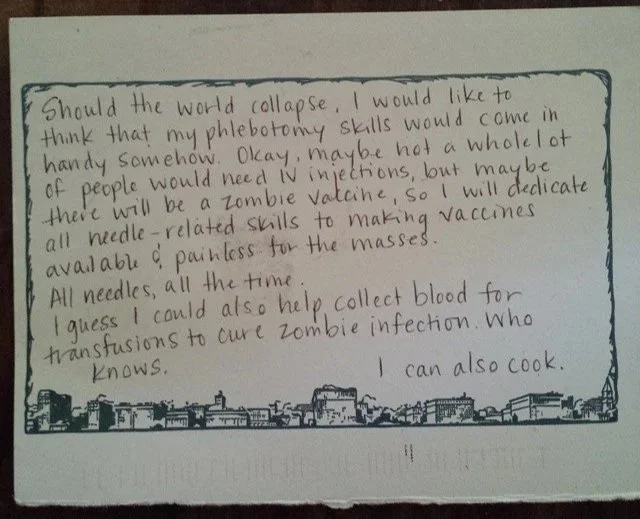 Should the world collapse, I would like to
think that my phlebotomy skills would come in
handy somehow. Okay, maybe not a whole lot
of people would need IV injections, but maybe
there will be a zombie vaccine, so I will dedicate
all needle-related skills to making vaccines
available & painless for the masses.
All needles, all the time.
I guess I could also help collect blood for
transfusions to cure zombie infection. Who
knows. I can also cook.